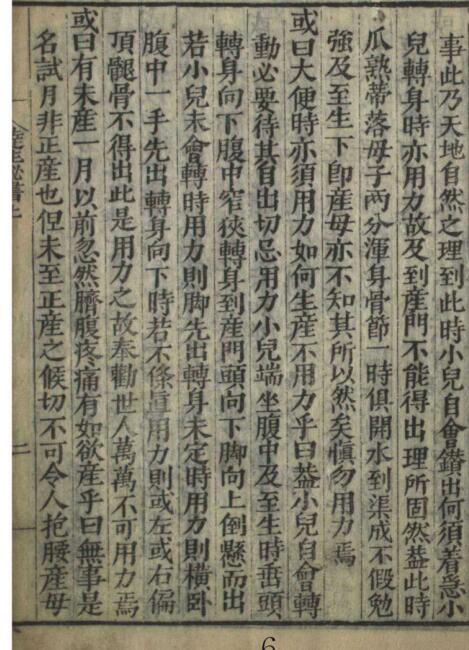 事此乃天地自然之理到此時小兒自會鑽出何須着急小
兒轉身時亦用力故及到產門不能得出理所固然葢此時
瓜熟蒂落母子兩分渾身骨節一時俱開水到渠成不假勉
強及至生下卽產母亦不知其所以然矣愼勿用力焉
或曰大便時亦須用力如何生產不用力乎曰葢小兒自會轉
動必要待其自出切忌用力小兒端坐腹中及至生時垂頭
轉身向下腹中窄狹轉身到產門頭向下脚向上倒懸而出
若小兒未會轉時用力則脚先出轉身未定時用力則橫卧
腹中一手先出轉身向下時若不條直用力則或左或右偏
頂腿骨不得出此是用力之故奉勸世人萬萬不可用力焉
或曰有未產一月以前忽然臍腹疼痛有如欲產乎曰無事是
名試月非正產也但未至正產之候切不可令人抱腰產母
產秘書上
二
6